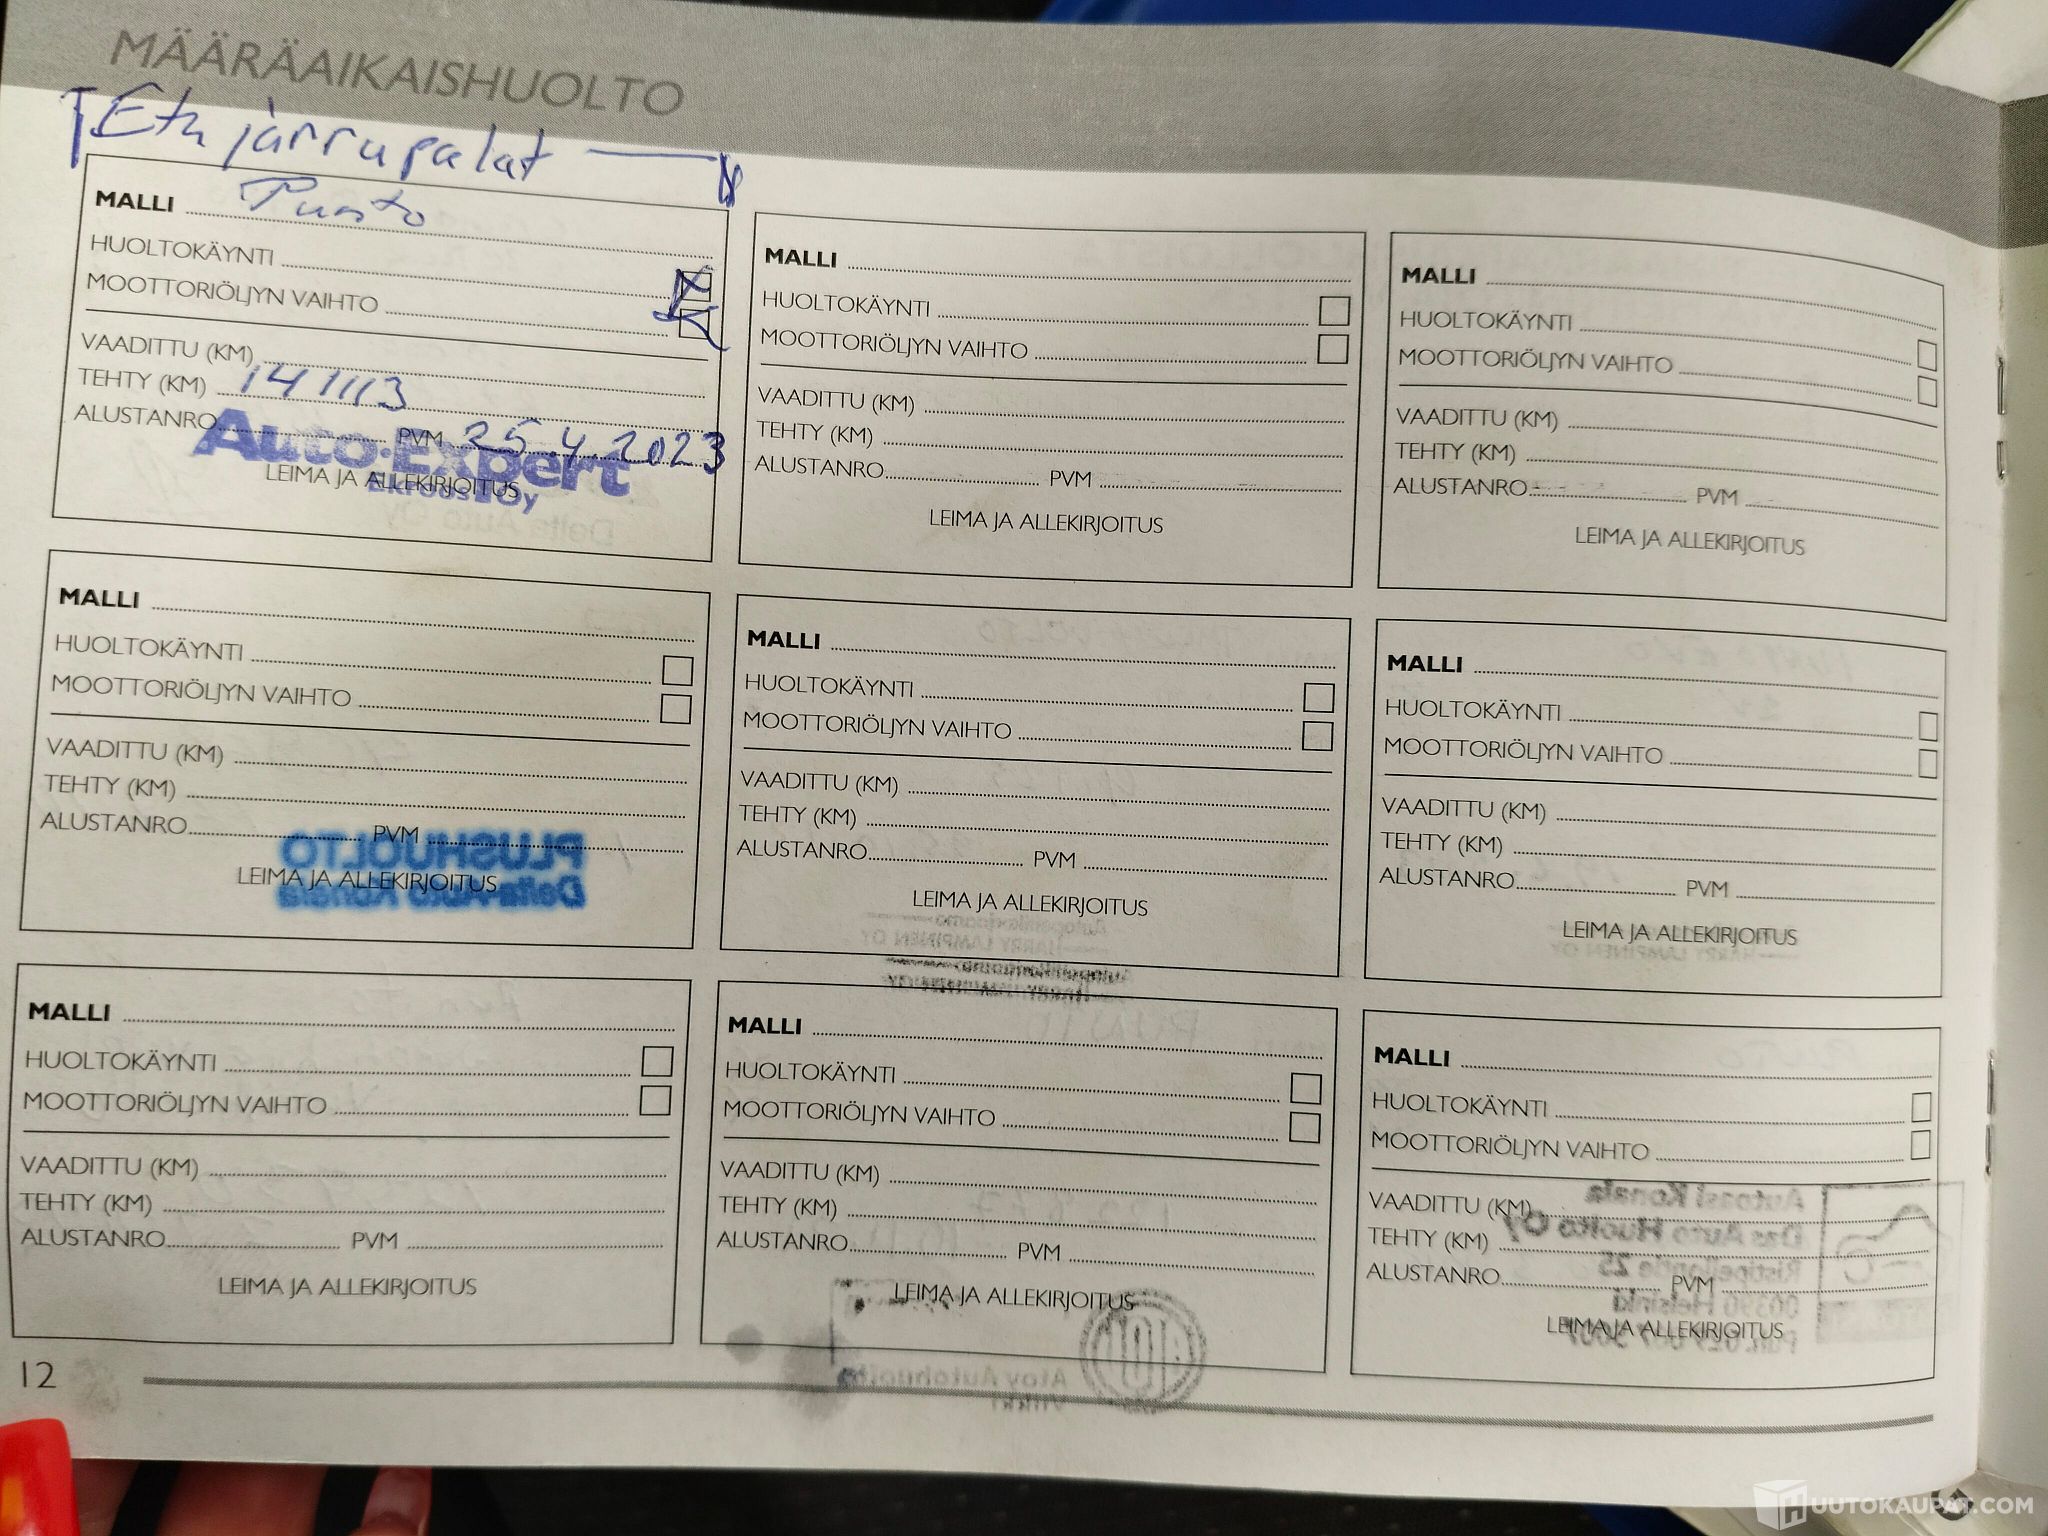 MÄÄRÄAIKAISHUOLTO
Etu järrupalat
MALLI Punto
HUOLTOKÄYNTI
MOOTTORIÖLJYN VAIHTO
VAADITTU (KM)
TEHTY (KM) 141113
ALUSTANRO PVM 25.4.2023
Auto-Expert
LEIMA JA ALLEKIRJOITUS
Ekroos Oy
MALLI
HUOLTOKÄYNTI
MOOTTORIÖLJYN VAIHTO
VAADITTU (KM)
TEHTY (KM)
ALUSTANRO PVM
LEIMA JA ALLEKIRJOITUS
MALLI
HUOLTOKÄYNTI
MOOTTORIÖLJYN VAIHTO
VAADITTU (KM)
TEHTY (KM)
ALUSTANRO PVM
LEIMA JA ALLEKIRJOITUS
Delta Auto Oy
MALLI
HUOLTOKÄYNTI
MOOTTORIÖLJYN VAIHTO
VAADITTU (KM)
TEHTY (KM)
ALUSTANRO PVM
PLUSHUOLTO
LEIMA JA ALLEKIRJOITUS
Delta-Auto Konala
MALLI
HUOLTOKÄYNTI
MOOTTORIÖLJYN VAIHTO
VAADITTU (KM)
TEHTY (KM)
ALUSTANRO PVM
LEIMA JA ALLEKIRJOITUS
HARRY LAMPINEN OY
MALLI
HUOLTOKÄYNTI
MOOTTORIÖLJYN VAIHTO
VAADITTU (KM)
TEHTY (KM)
ALUSTANRO PVM
LEIMA JA ALLEKIRJOITUS
HARRY LAMPINEN OY
MALLI
HUOLTOKÄYNTI
MOOTTORIÖLJYN VAIHTO
VAADITTU (KM)
TEHTY (KM)
ALUSTANRO PVM
LEIMA JA ALLEKIRJOITUS
MALLI
HUOLTOKÄYNTI
MOOTTORIÖLJYN VAIHTO
VAADITTU (KM)
TEHTY (KM)
ALUSTANRO PVM
LEIMA JA ALLEKIRJOITUS
Atoy Autohuolto
Viikki
MALLI
HUOLTOKÄYNTI
MOOTTORIÖLJYN VAIHTO
VAADITTU (KM)
TEHTY (KM)
ALUSTANRO PVM
LEIMA JA ALLEKIRJOITUS
Autoasi Konala
Das Auto Huolto Oy
Ristipellontie 25
00390 Helsinki
12
HUUTOKAUPAT.COM